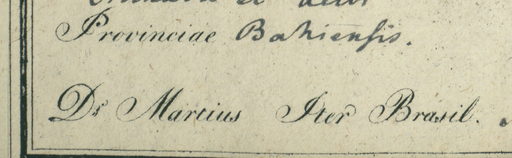 et
Provinciae Bahiensis.
Dr Martius Iter Brasil.